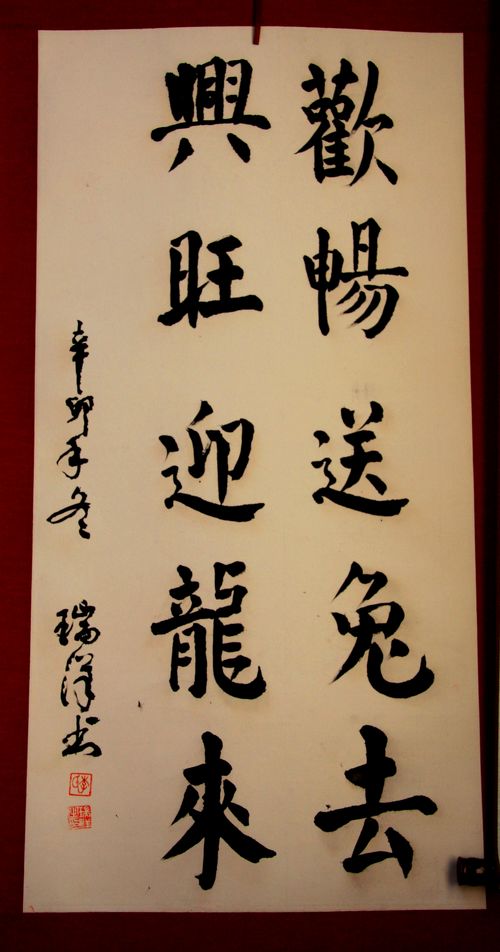 歡暢送兔去
興旺迎龍來
辛卯年冬
瑞澤书